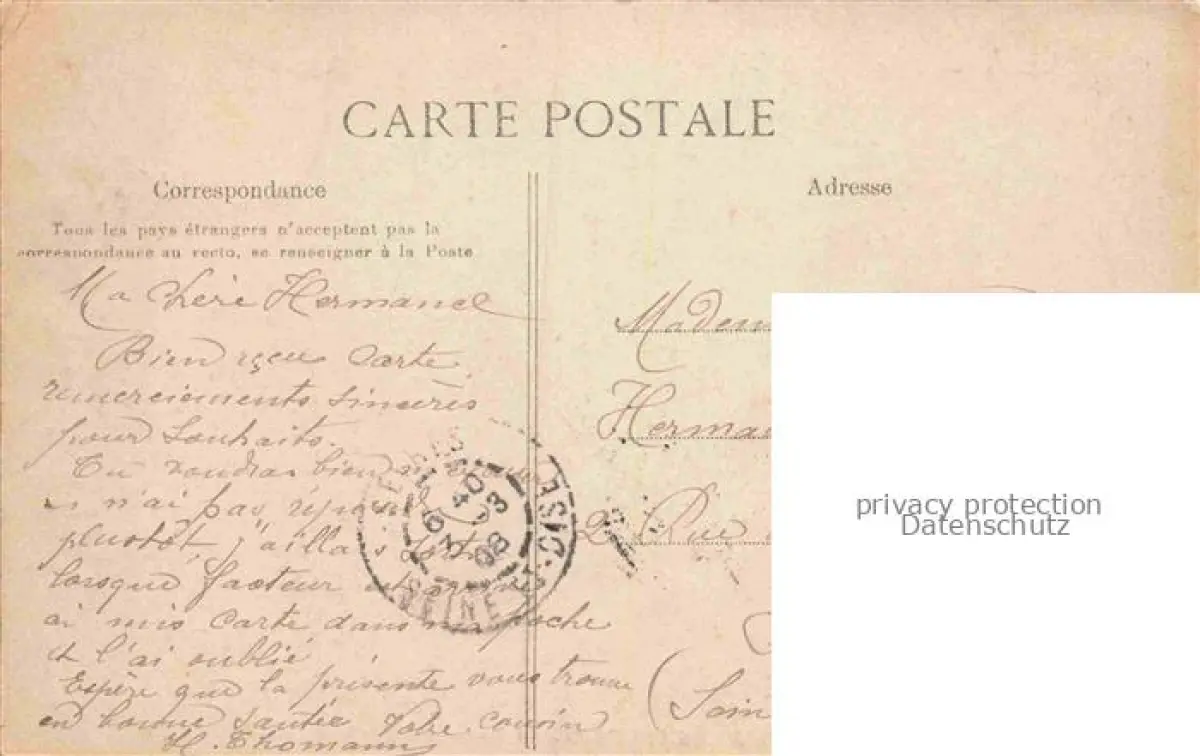 CARTE POSTALE
Correspondance
Tous les pays étrangers n'acceptent pas la
correspondance au recto, se renseigner à la Poste
Ma chère Hermance
Bien reçu carte
remerciements sincères
pour souhaits.
Tu voudras bien m'excuser
si n'ai pas répondu
plustôt, j'allais sortir
lorsque facteur est arrivé
ai mis carte dans ma poche
et l'ai oublié
Espère que la présente vous trouve
en bonne santée Votre cousin
H. Thomann
6 40
23
08
SEINE-ET-OISE
Adresse
Madem
Herman
2 Rue
(Sein
privacy protection
Datenschutz